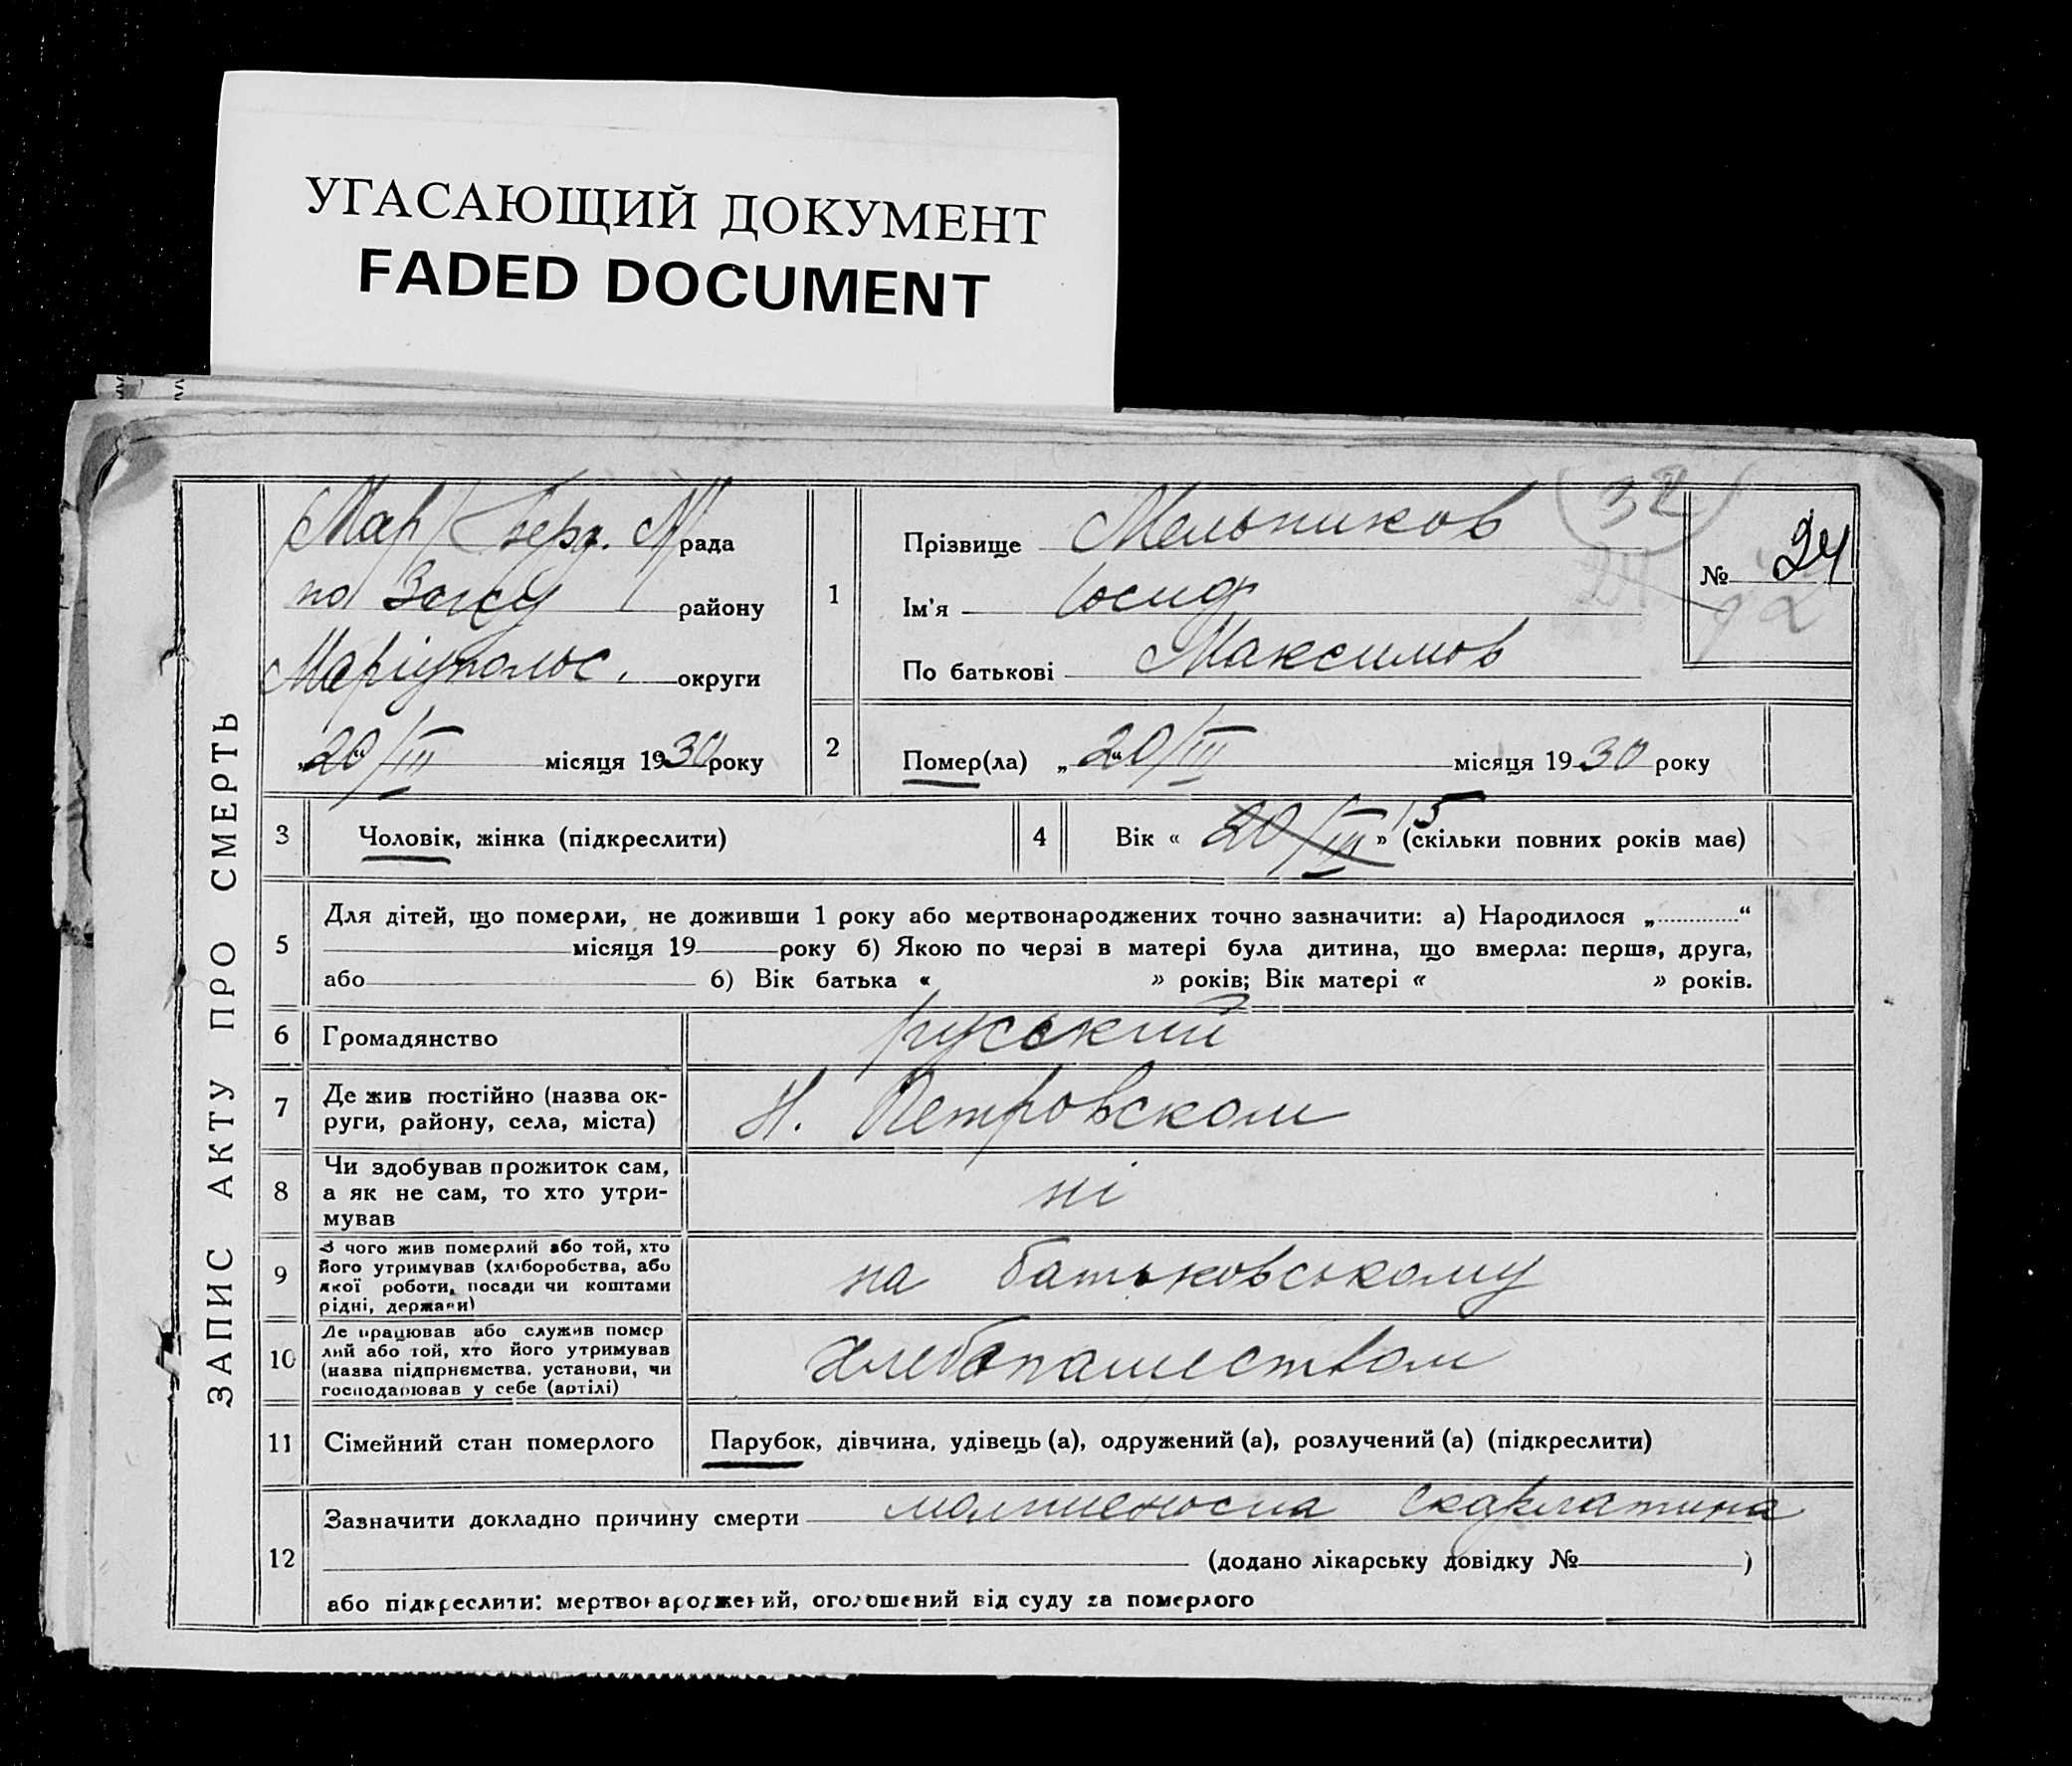 УГАСАЮЩИЙ ДОКУМЕНТ
FADED DOCUMENT
ЗАПИС АКТУ ПРО СМЕРТЬ
Мар/ рада
по Загсу району
Маріупольс. округи
„20/III“ місяця 1930 року
1
Прізвище Мельников
Ім'я Іосиф
По батькові Максимов
32
№ 24
2
Помер(ла) „20/III“ місяця 1930 року
3
Чоловік, жінка (підкреслити)
4
Вік « 20/III » 15 (скільки повних років має)
5
Для дітей, що померли, не доживши 1 року або мертвонароджених точно зазначити: а) Народилося „ “
місяця 19 року б) Якою по черзі в матері була дитина, що вмерла: перша, друга,
або б) Вік батька « » років; Вік матері « » років.
6
Громадянство
руський
7
Де жив постійно (назва ок-
руги, району, села, міста)
Н. Петровском
8
Чи здобував прожиток сам,
а як не сам, то хто утри-
мував
ні
9
З чого жив померлий або той, хто
його утримував (хліборобства, або
якої роботи, посади чи коштами
рідні, держави)
на батьковському
10
Де працював або служив помер
лий або той, хто його утримував
(назва підприємства, установи, чи
господарював у себе (артілі)
хлебопашеством
11
Сімейний стан померлого
Парубок, дівчина, удівець (а), одружений (а), розлучений (а) (підкреслити)
12
Зазначити докладно причину смерти молниеносна скарлатина
(додано лікарську довідку № )
або підкреслити: мертвонароджений, оголошений від суду за померлого